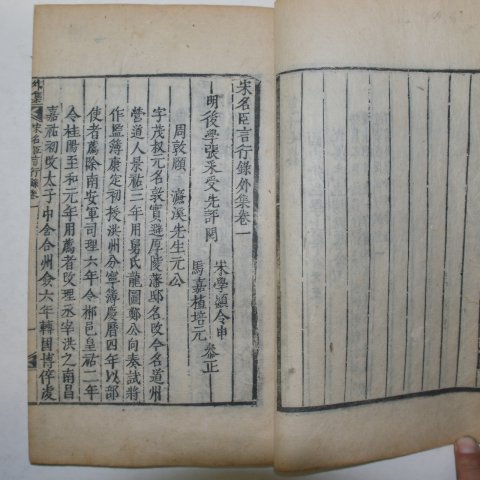 宋名臣言行錄外集卷一
明後學張采受先評閱
宋學顯令申
馬嘉植培元
叅正
周敦頤 濂溪先生元公
字茂叔元名敦實避厚陵藩邸名改今名道州
營道人景祐二年用舅氏龍圖鄭公向奏試將
作監簿康定初授洪州分寧簿慶曆四年以部
使者薦除南安軍司理六年令郴邑皇祐二年
令桂陽至和元年用薦者改理丞宰洪之南昌
嘉祐初改太子中舍合州僉六年轉國博倅虔
外集
宋名臣言行錄卷一